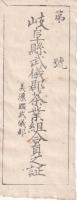 第 號
岐阜縣武儀郡茶業組合員之証
美濃國武儀郡